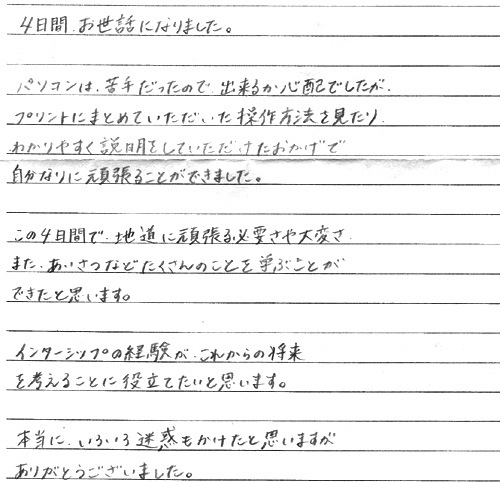 4日間、お世話になりました。
パソコンは、苦手だったので、出来るか心配でしたが、
プリントにまとめていただいた操作方法を見たり、
わかりやすく説明をしていただけたおかげで
自分なりに頑張ることができました。
この4日間で、地道に頑張る必要さや大変さ、
また、あいさつなどたくさんのことを学ぶことが
できたと思います。
インターシップの経験が、これからの将来
を考えることに役立てたいと思います。
本当に、いろいろ迷惑もかけたと思いますが
ありがとうございました。